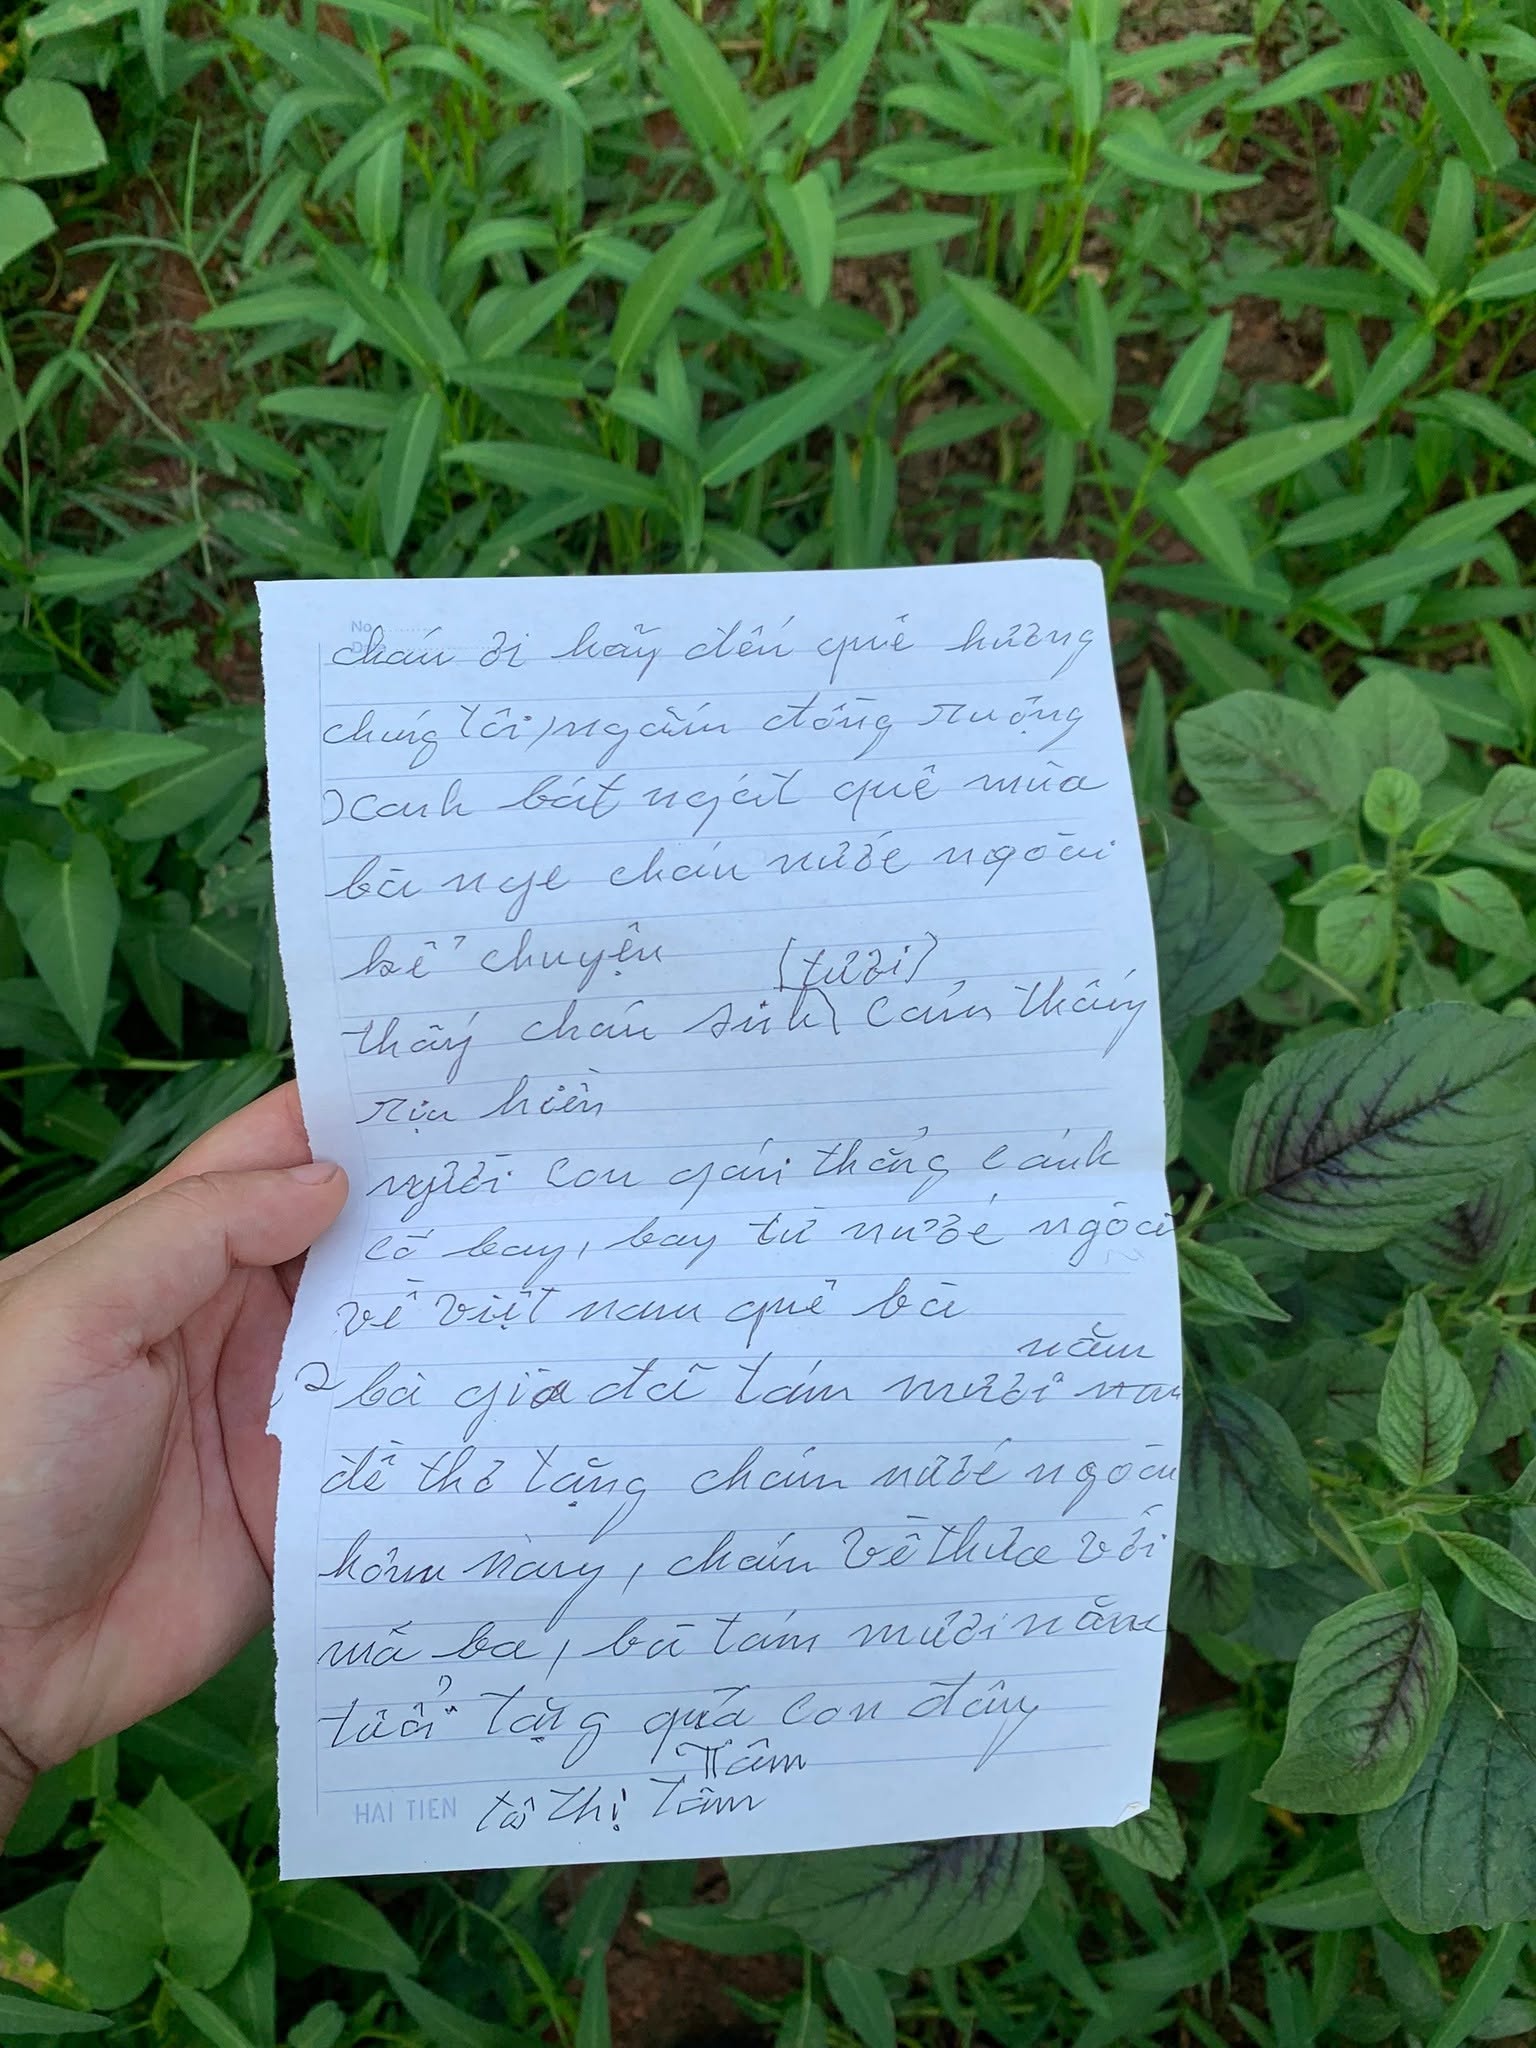 No
cháu ơi hãy đến quê hương
chúng tôi, ngắm đồng ruộng
xanh bát ngát quê mùa
bà nge cháu nước ngoài
kể chuyện
(tươi)
thấy cháu sinh cảm thấy
rịu hiền
người con gái thẳng cánh
cò bay, bay từ nước ngoài
về việt nam quê bà
năm
2 bà già đã tám mươi
đề thơ tặng cháu nước ngoài
hôm này, cháu về thưa với
má ba, bà tám mươi năm
tuổi tặng quà con đây
Tâm
tô thị tâm
HAI TIEN